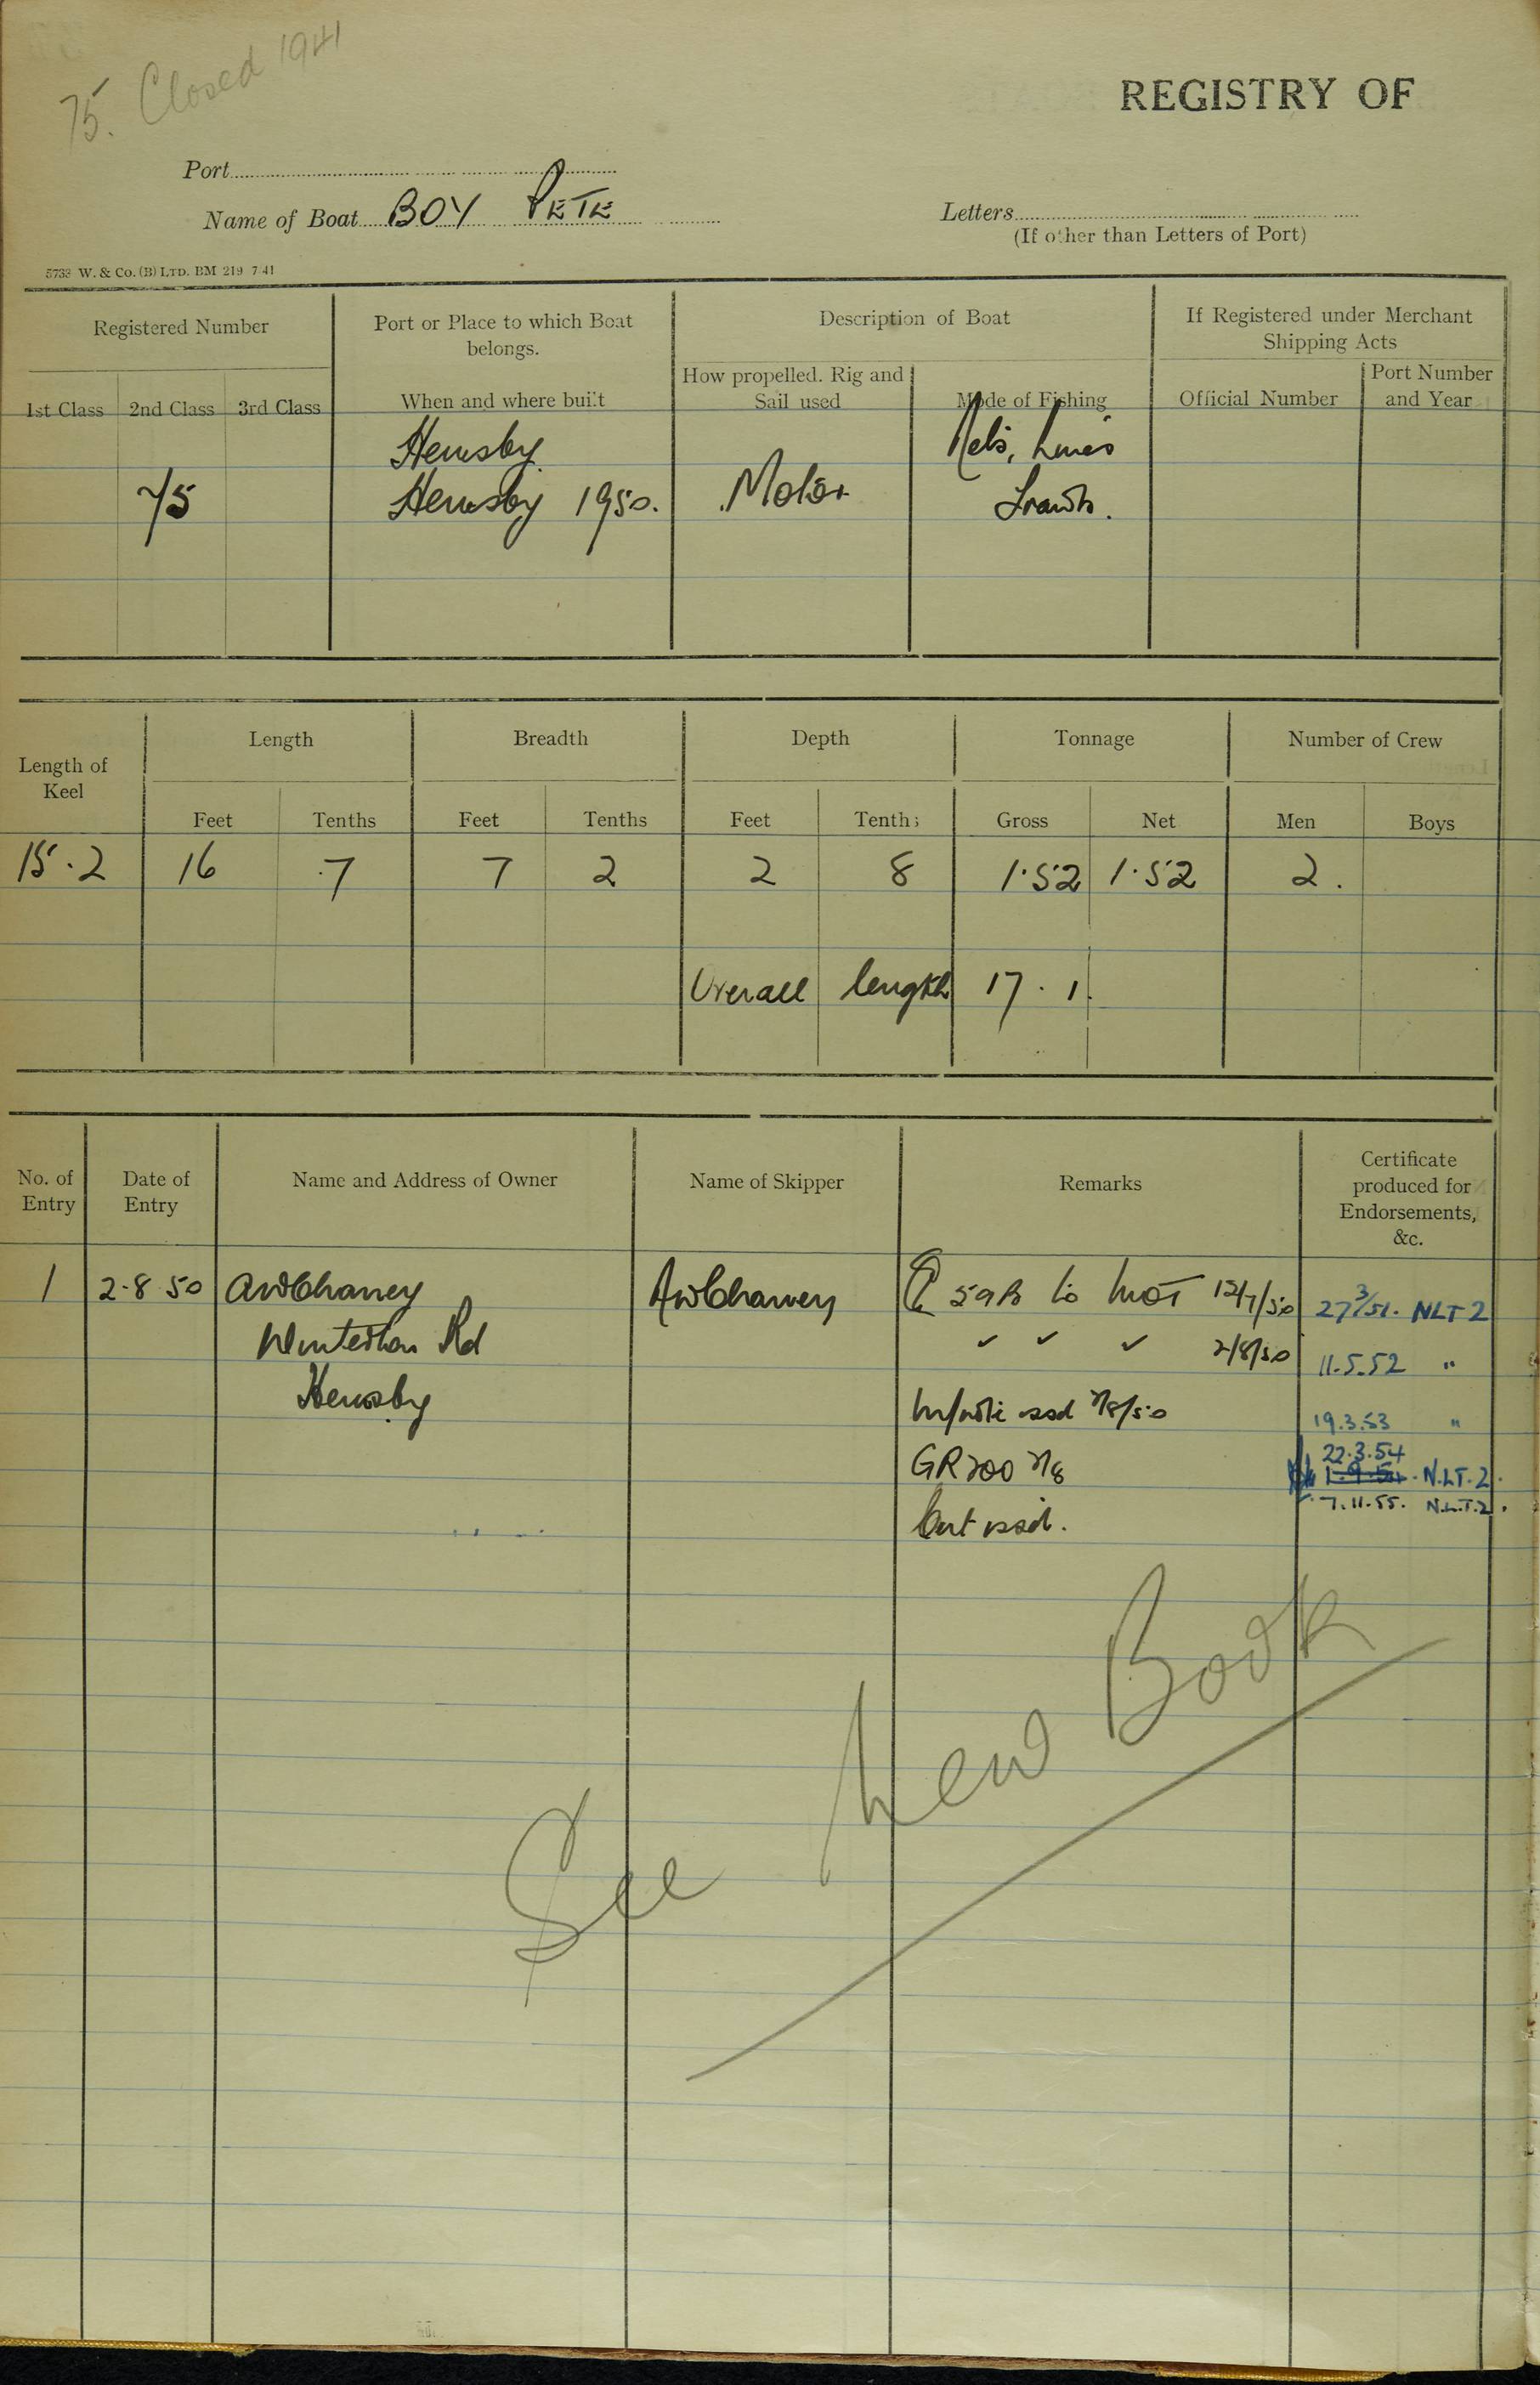 75. Closed 1941
REGISTRY OF
Port
Name of Boat BOY PETE
Letters
(If other than Letters of Port)
5733 W. & Co. (B) LTD. BM 219 7 41
Registered Number
Port or Place to which Boat belongs.
Description of Boat
If Registered under Merchant Shipping Acts
1st Class 2nd Class 3rd Class
When and where built
How propelled. Rig and Sail used
Mode of Fishing
Official Number
Port Number and Year
Hemsby
Nets, Lines
75 Hemsby 1950. Motor Trawls.
Length of Keel
Length Breadth Depth Tonnage Number of Crew
Feet Tenths Feet Tenths Feet Tenths Gross Net Men Boys
15.2 16 .7 7 2 2 8 1.52 1.52 2.
Overall length 17.1
No. of Entry
Date of Entry
Name and Address of Owner
Name of Skipper
Remarks
Certificate produced for Endorsements, &c.
1 2.8.50 AW Chaney AW Chaney 59B to MOT 12/7/50 27/3/51. NLT 2
Winterton Rd 2/8/50 11.5.52 "
Hemsby issd 7/8/50 19.3.53 "
GR200 7/8 22.3.54
1.9.54 N.LT.2.
Cert issd. 7.11.55. N.L.T.2.
See New Book